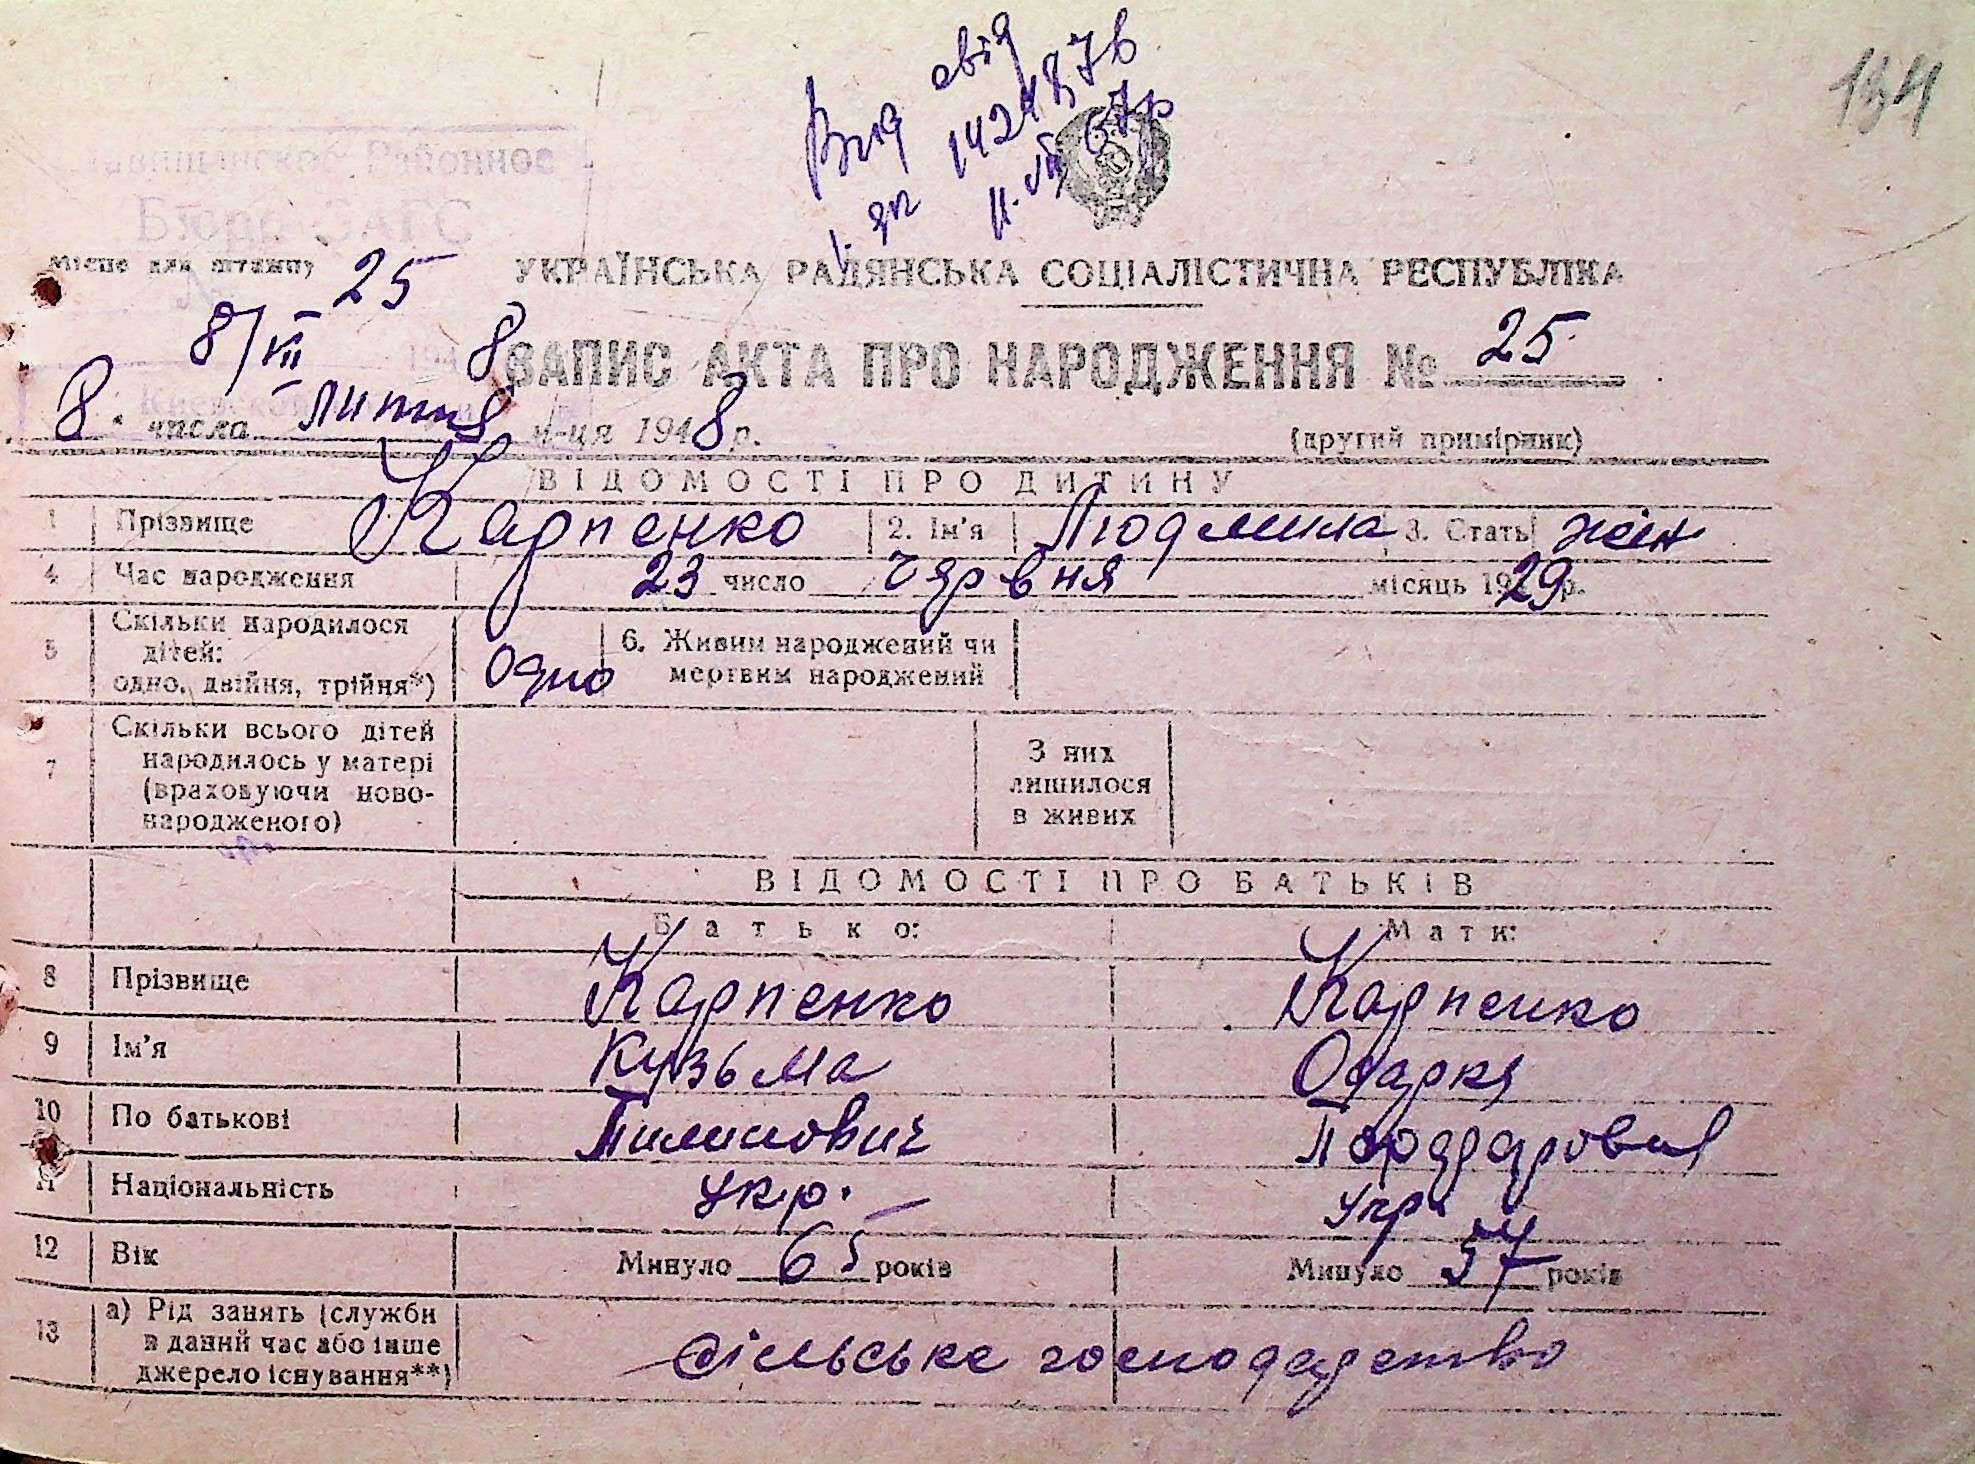 134
Вид свід
1424876
11. VII 67р
Районное
Бюро ЗАГС
Місце для штампу
25
УКРАЇНСЬКА РАДЯНСЬКА СОЦІАЛІСТИЧНА РЕСПУБЛІКА
8/VII 1948
ЗАПИС АКТА ПРО НАРОДЖЕННЯ № 25
8 числа липня м-ця 1948 р.
(другий примірник)
ВІДОМОСТІ ПРО ДИТИНУ
1 Прізвище Карпенко 2. Ім'я Людмила 3. Стать жін
4 Час народження 23 число червня місяць 1929 р.
5 Скільки народилося дітей: одно, двійня, трійня*) Одно 6. Живим народжений чи мертвим народжений
7 Скільки всього дітей народилось у матері (враховуючи новонародженого) З них лишилося в живих
ВІДОМОСТІ ПРО БАТЬКІВ
Батько: Мати:
8 Прізвище Карпенко Карпенко
9 Ім'я Кузьма Одарка
10 По батькові Пилипович
11 Національність укр. укр.
12 Вік Минуло 65 років Минуло 57 років
13 а) Рід занять (служби в даний час або інше джерело існування**) сільське господарство